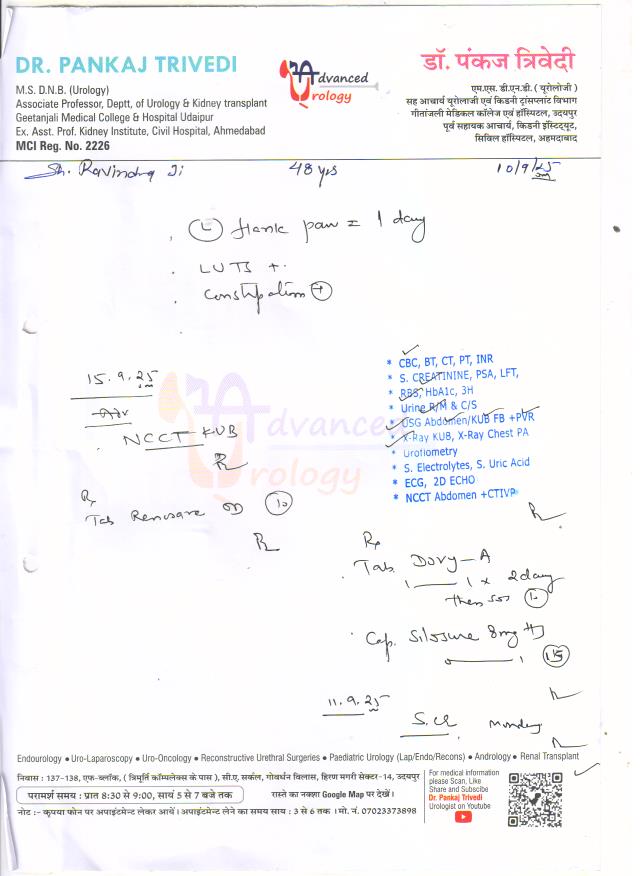 DR. PANKAJ TRIVEDI
M.S. D.N.B. (Urology)
Associate Professor, Deptt, of Urology & Kidney transplant
Geetanjali Medical College & Hospital Udaipur
Ex. Asst. Prof. Kidney Institute, Civil Hospital, Ahmedabad
MCI Reg. No. 2226
Advanced
Urology
डॉ. पंकज त्रिवेदी
एम.एस. डी.एन.डी. ( यूरोलोजी )
सह आचार्य यूरोलॉजी एवं किडनी ट्रांसप्लांट विभाग
गीतांजली मेडिकल कॉलेज एवं हॉस्पिटल, उदयपुर
पूर्व सहायक आचार्य, किडनी इंस्टिट्यूट,
सिविल हॉस्पिटल, अहमदाबाद
Sh. Ravindra Ji 48 yrs 10/9/25
(L) flank pain = 1 day
LUTS +
Constipation +
* CBC, BT, CT, PT, INR
* S. CREATININE, PSA, LFT,
* RBS, HbA1c, 3H
* Urine R/M & C/S
* USG Abdomen/KUB FB +PVR
* X-Ray KUB, X-Ray Chest PA
* Urofiometry
* S. Electrolytes, S. Uric Acid
* ECG, 2D ECHO
* NCCT Abdomen +CTIVP
15.9.25
NCCT KUB
Advanced
Urology
Rx
Tab Renusave OD 10
Rx
Tab. Dovy-A
1 — 1 x 2 day
then sos 10
Cap. Silosure 8mg HS
0 — 1 15
11.9.25
S.Cr Monday
Endourology ● Uro-Laparoscopy ● Uro-Oncology ● Reconstructive Urethral Surgeries ● Paediatric Urology (Lap/Endo/Recons) ● Andrology ● Renal Transplant
निवास : 137-138, एफ-ब्लॉक, ( त्रिमूर्ति कॉम्पलेक्स के पास ), सी.ए. सर्कल, गोवर्धन विलास, हिरण मगरी सेक्टर-14, उदयपुर
परामर्श समय : प्रात 8:30 से 9:00, सायं 5 से 7 बजे तक
रास्ते का नक्शा Google Map पर देखें।
नोट :- कृपया फोन पर अपाइंटमेन्ट लेकर आयें। अपाइंटमेन्ट लेने का समय सायं : 3 से 6 तक । मो. नं. 07023373898
For medical information
please Scan, Like
Share and Subscibe
Dr. Pankaj Trivedi
Urologist on Youtube